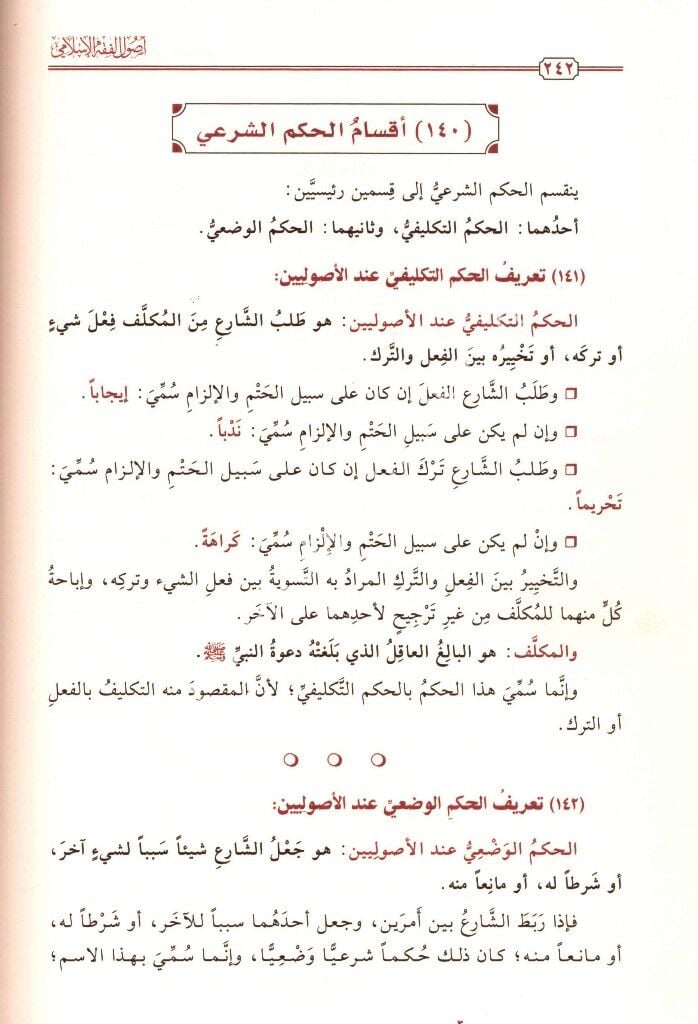 أصول الفقه الإسلامي
٢٤٢
(١٤٠) أقسامُ الحكم الشرعي
ينقسم الحكم الشرعيُّ إلى قِسمين رئيسيَّين:
أحدُهما: الحكمُ التكليفيُّ، وثانيهما: الحكمُ الوضعيُّ.
(١٤١) تعريفُ الحكم التكليفيِّ عند الأصوليين:
الحكمُ التكليفيُّ عند الأصوليين: هو طَلبُ الشَّارِعِ مِنَ المُكلَّف فِعْلَ شيءٍ
أو تركَه، أو تَخْيِيرُه بينَ الفِعل والتَّرك.
❒ وطَلَبُ الشَّارِع الفعلَ إن كان على سبيل الحَتْمِ والإلزامِ سُمِّيَ: إيجاباً.
❒ وإن لم يكن على سَبيلِ الحَتْمِ والإلزام سُمِّيَ: نَدْباً.
❒ وطَلبُ الشَّارِعِ تَرْكَ الفعل إن كان على سَبيل الحَتْمِ والإلزام سُمِّيَ:
تَحْريماً.
❒ وإنْ لم يكن على سبيل الحَتْمِ والإِلْزامِ سُمِّيَ: كَراهَةً.
والتَّخيِيرُ بينَ الفِعلِ والتَّركِ المرادُ به التَّسويةُ بين فعلِ الشيء وتركِه، وإباحةُ
كُلٍّ منهما للمُكلَّف مِن غيرِ تَرْجيحٍ لأحدِهما على الآخَر.
والمكلَّف: هو البالِغُ العاقِلُ الذي بَلَغتْهُ دعوةُ النبيِّ ﷺ.
وإنَّما سُمِّيَ هذا الحكمُ بالحكم التَّكليفيِّ؛ لأنَّ المقصودَ منه التكليفُ بالفعلِ
أو الترك.
(١٤٢) تعريفُ الحكمِ الوضعيِّ عند الأصوليين:
الحكمُ الوَضْعِيُّ عند الأصوليين: هو جَعْلُ الشَّارِعِ شيئاً سَبباً لشيءٍ آخرَ،
أو شَرطاً له، أو مانِعاً منه.
فإذا رَبَطَ الشَّارِعُ بين أمرَين، وجعل أحدَهُما سبباً للآخَر، أو شَرْطاً له،
أو مانعاً منه؛ كان ذلك حُكماً شرعيًّا وَضْعِيًّا، وإنَّما سُمِّيَ بهذا الاسم؛